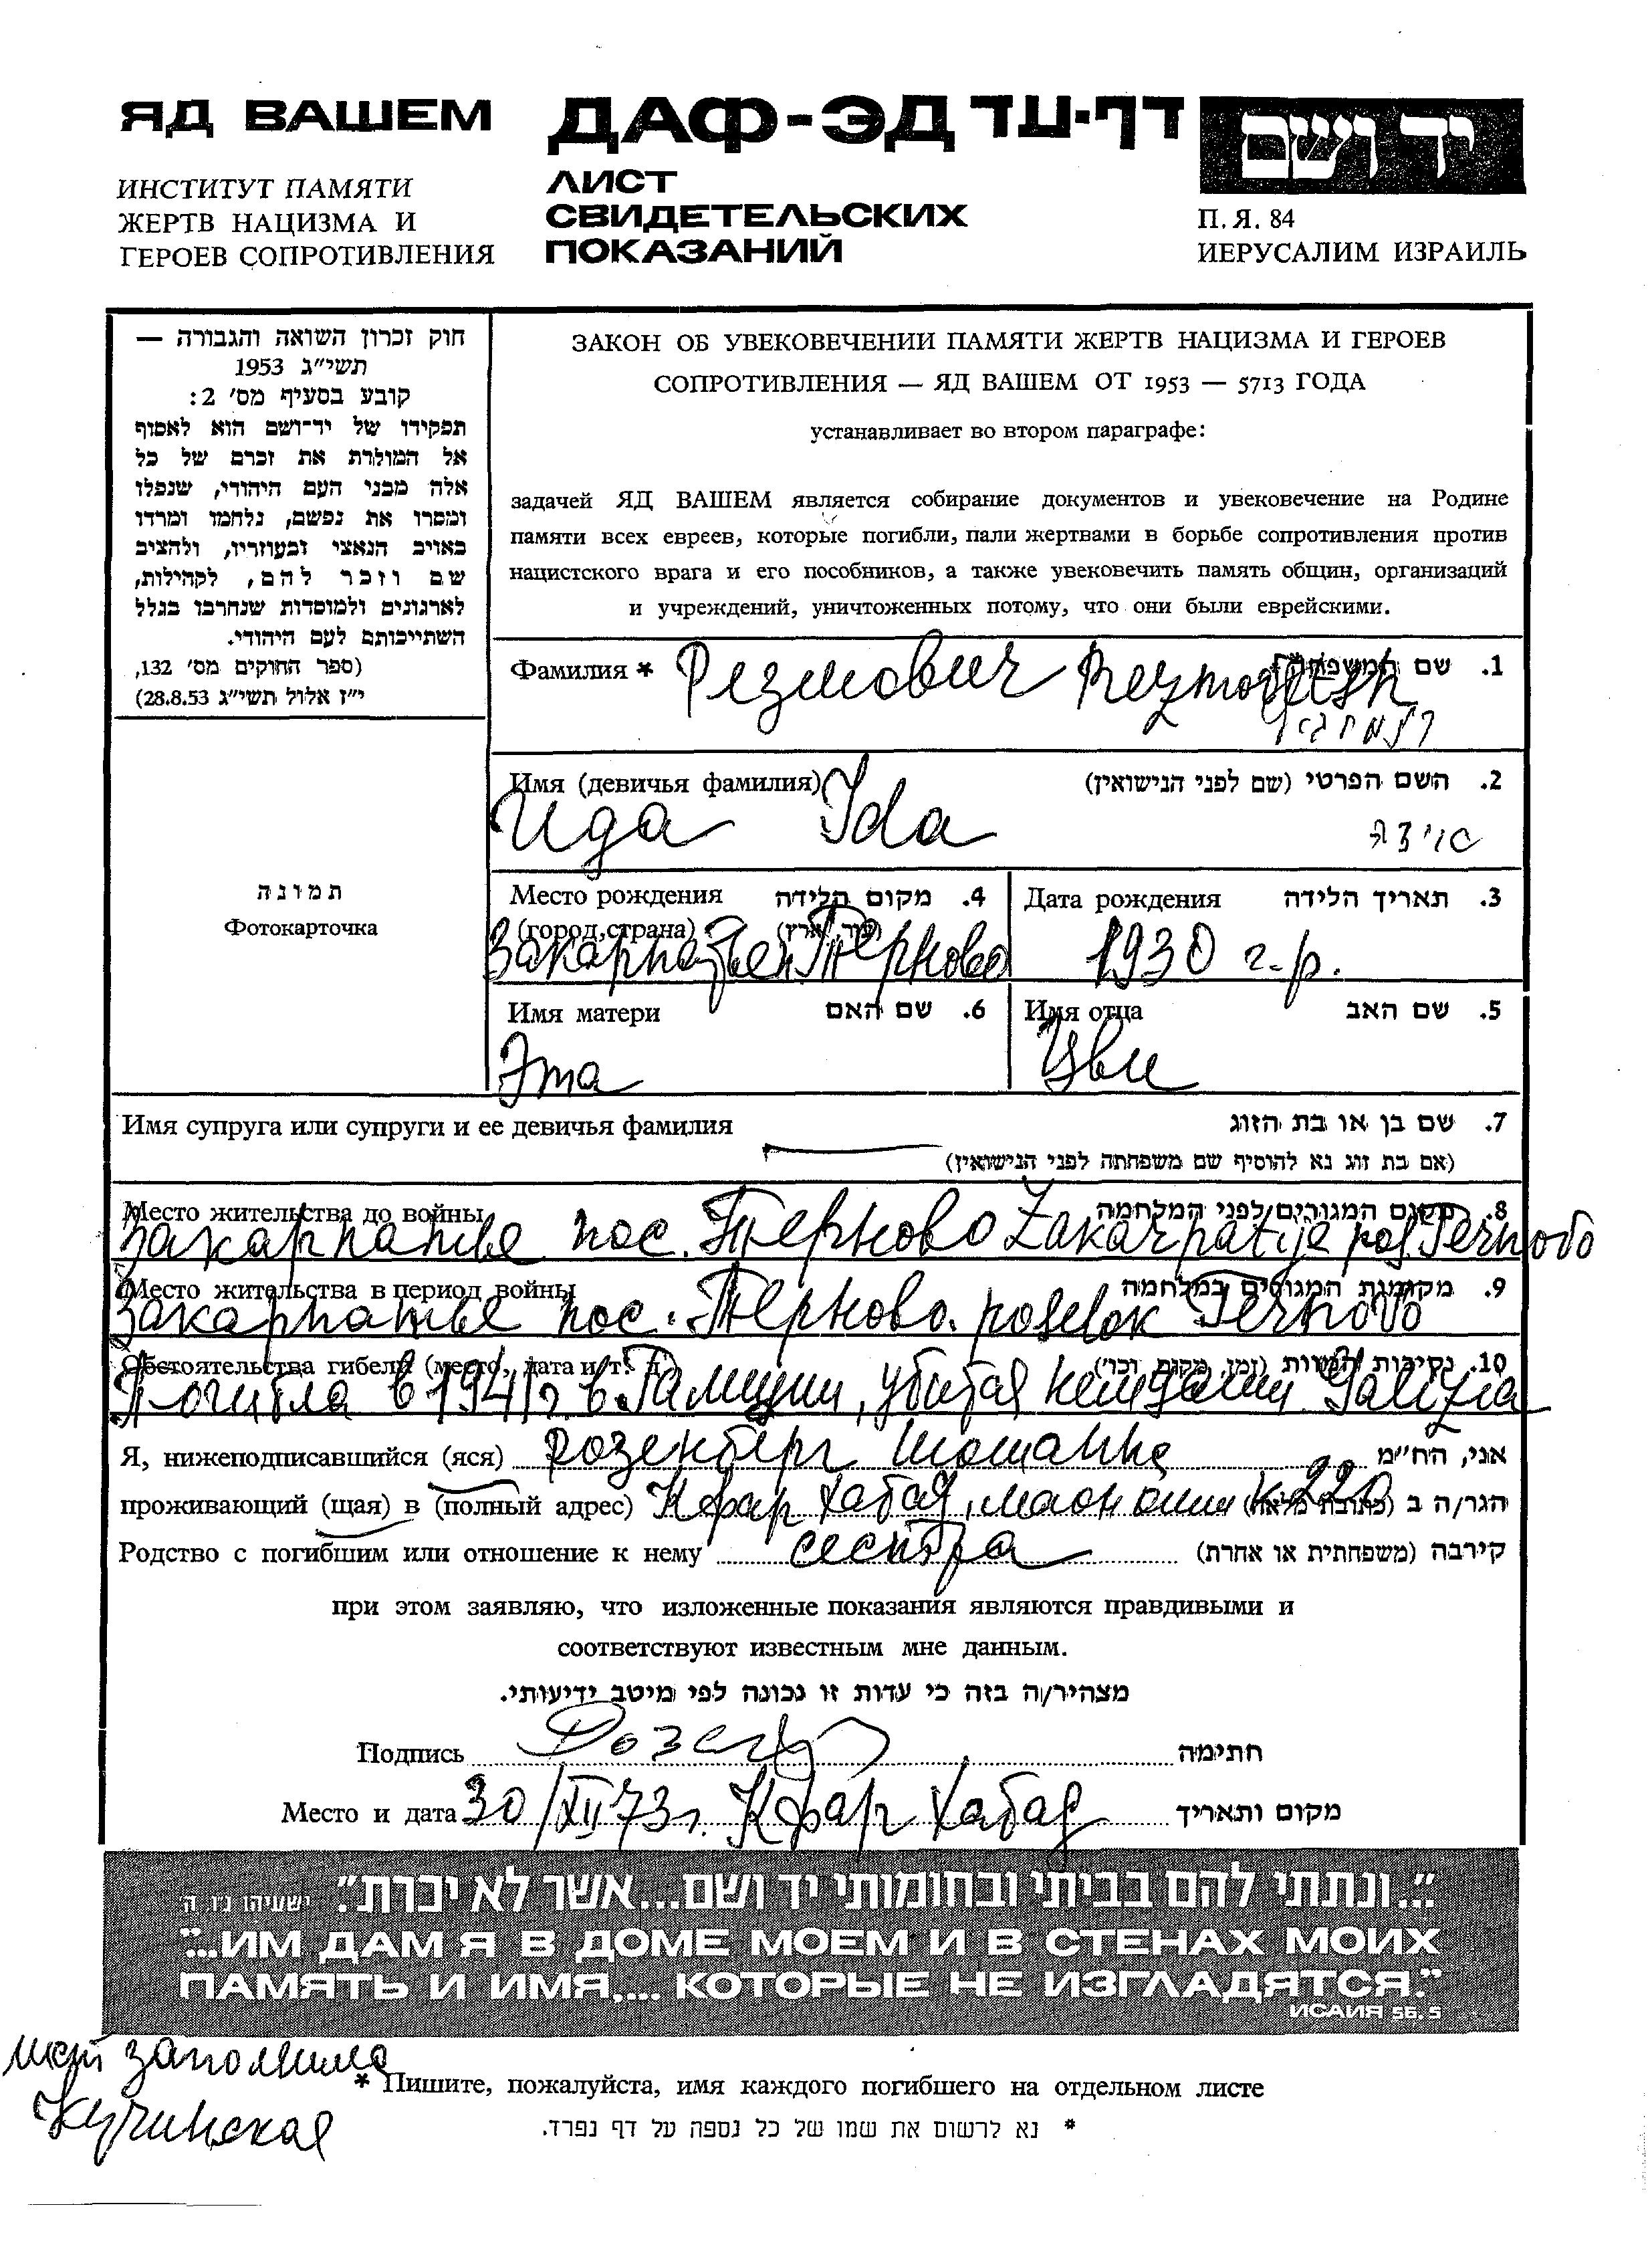 ЯД ВАШЕМ
ИНСТИТУТ ПАМЯТИ
ЖЕРТВ НАЦИЗМА И
ГЕРОЕВ СОПРОТИВЛЕНИЯ
ДАФ-ЭД דף-עד
ЛИСТ
СВИДЕТЕЛЬСКИХ
ПОКАЗАНИЙ
יד ושם
П. Я. 84
ИЕРУСАЛИМ ИЗРАИЛЬ
חוק זכרון השואה והגבורה —
תשי״ג 1953
קובע בסעיף מס׳ 2:
תפקידו של יד־ושם הוא לאסוף
אל המולדת את זכרם של כל
אלה מבני העם היהודי, שנפלו
ומסרו את נפשם, נלחמו ומרדו
באויב הנאצי ובעוזריו, ולהציב
שם וזכר להם, לקהילות,
לארגונים ולמוסדות שנחרבו בגלל
השתייכותם לעם היהודי.
(ספר החוקים מס׳ 132,
י״ז אלול תשי״ג 28.8.53)
תמונה
Фотокарточка
ЗАКОН ОБ УВЕКОВЕЧЕНИИ ПАМЯТИ ЖЕРТВ НАЦИЗМА И ГЕРОЕВ
СОПРОТИВЛЕНИЯ — ЯД ВАШЕМ ОТ 1953 — 5713 ГОДА
устанавливает во втором параграфе:
задачей ЯД ВАШЕМ является собирание документов и увековечение на Родине
памяти всех евреев, которые погибли, пали жертвами в борьбе сопротивления против
нацистского врага и его пособников, а также увековечить память общин, организаций
и учреждений, уничтоженных потому, что они были еврейскими.
Фамилия * Резмович 1. שם המשפחה*
Имя (девичья фамилия) 2. השם הפרטי (שם לפני הנישואין)
Ида Ida
Место рождения 4. מקום הלידה
(город,страна) (עיר, ארץ)
Закарпатье Терново
Дата рождения 3. תאריך הלידה
1930 г.р.
Имя матери 6. שם האם
Эта
Имя отца 5. שם האב
Цви
Имя супруга или супруги и ее девичья фамилия 7. שם בן או בת הזוג
(אם בת זוג נא להוסיף שם משפחתה לפני הנישואין)
Место жительства до войны 8. מקום המגורים לפני המלחמה
Закарпатье пос. Терново Zakarpatije pos Ternovo
Место жительства в период войны 9. מקומות המגורים במלחמה
Закарпатье пос. Терново. poselok Ternovo
Обстоятельства гибели (место, дата и т. д.) 10. נסיבות המוות (זמן, מקום וכו׳)
Погибла в 1941 г. в Галиции, убитая немцами Galizia
Я, нижеподписавшийся (яся) Розенберг Шошанна אני, הח״מ
проживающий (щая) в (полный адрес) Кфар Хабад, маон олим к 220 הגר/ה ב (כתובת מלאה)
Родство с погибшим или отношение к нему сестра קירבה (משפחתית או אחרת)
при этом заявляю, что изложенные показания являются правдивыми и
соответствуют известным мне данным.
מצהיר/ה בזה כי עדות זו נכונה לפי מיטב ידיעותי.
Подпись חתימה
Место и дата 30/XII 73 г. Кфар Хабад מקום ותאריך
"...ונתתי להם בביתי ובחומותי יד ושם...אשר לא יכרת". ישעיהו נ״ו ה׳
"...ИМ ДАМ Я В ДОМЕ МОЕМ И В СТЕНАХ МОИХ
ПАМЯТЬ И ИМЯ.... КОТОРЫЕ НЕ ИЗГЛАДЯТСЯ."
ИСАИЯ 56.5
заполнила
Кучинская
* Пишите, пожалуйста, имя каждого погибшего на отдельном листе
* נא לרשום את שמו של כל נספה על דף נפרד.